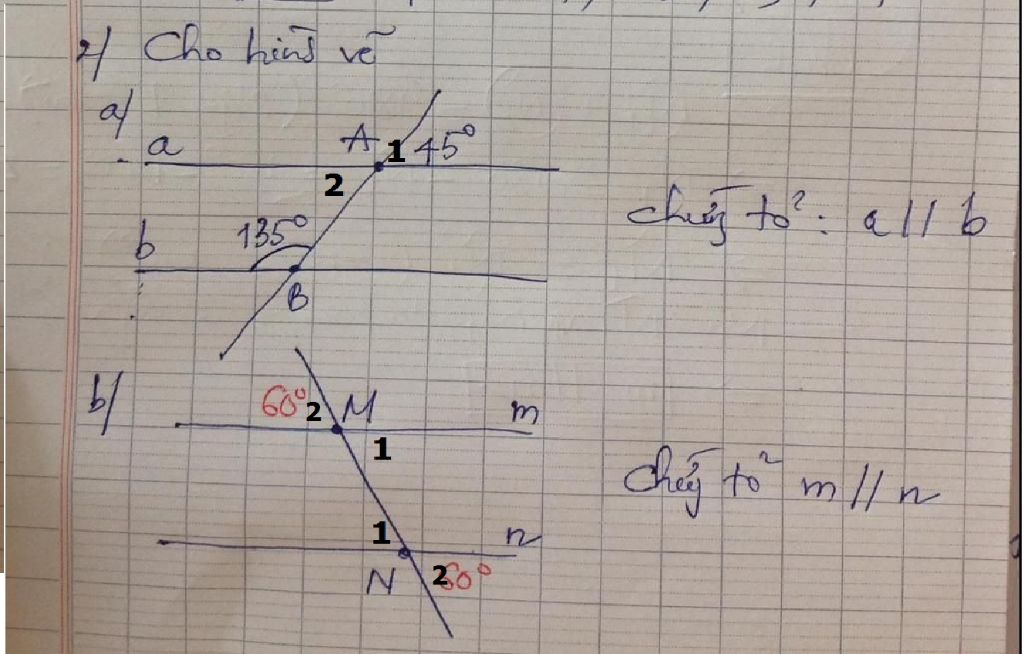 2/ Cho hình vẽ
a/
a A 1 45°
2
b 135°
B
chứng tỏ: a // b
b/
60° 2 M m
1
1 n
N 2 60°
chứng tỏ m // n